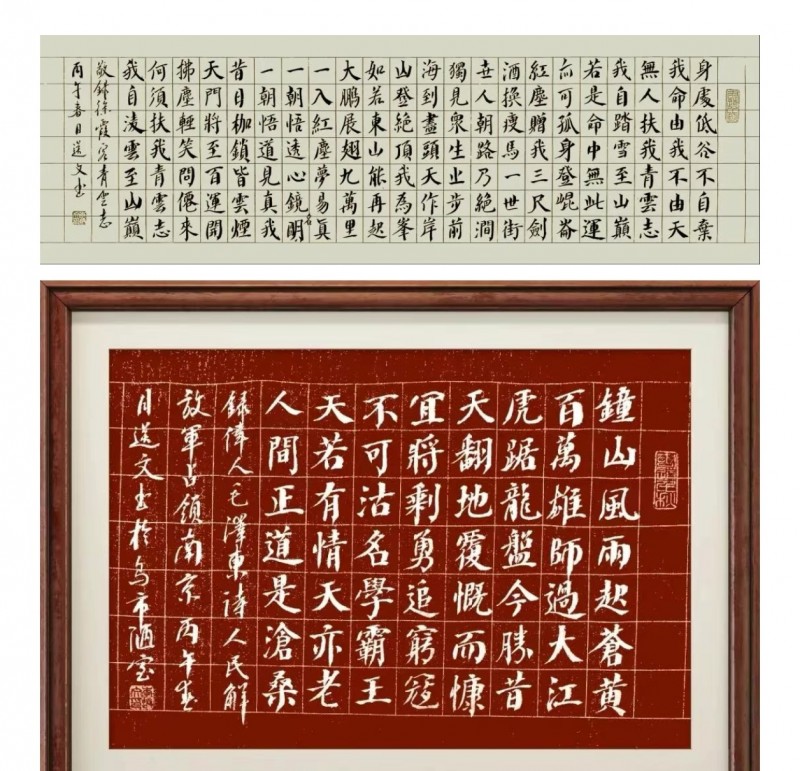 身處低谷不自棄
我命由我不由天
無人扶我青雲志
我自踏雪至山巔
若是命中無此運
亦可孤身登崐崙
紅塵贈我三尺劍
酒換瘦馬一世街
世人朝路乃絕澗
獨見衆生止步前
海到盡頭天作岸
山登絕頂我為峯
如若東山能再起
大鵬展翅九萬里
一入紅塵夢易真
一朝悟透心鏡明
一朝悟道見真我
昔日枷鎖皆雲煙
天門將至百運開
拂塵輕笑問僊來
何須扶我青雲志
我自淩雲至山巔
敬錄徐霞客青雲志
丙午春日送文書
鐘山風雨起蒼黃
百萬雄師過大江
虎踞龍盤今勝昔
天翻地覆慨而慷
宜將剩勇追窮寇
不可沽名學霸王
天若有情天亦老
人間正道是滄桑
錄偉人毛澤東詩人民解
放軍占領南京丙午春
月送文書於烏市陋室